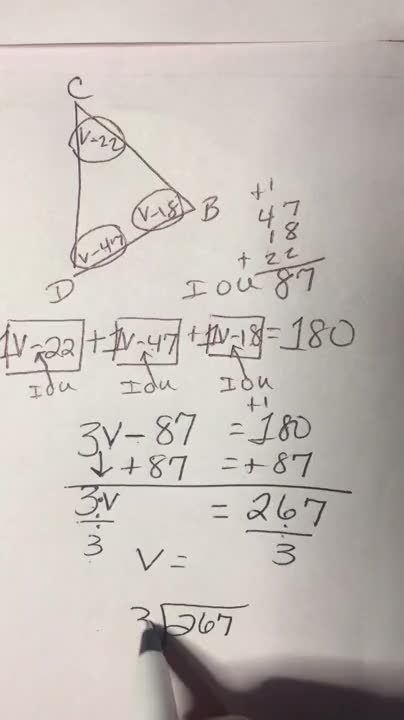 C
V-22
V-18 B
V-47
D
+1
47
18
+ 22
IOU 87
1V-22 + 1V-47 + 1V-18 = 180
IOU IOU IOU
+1
3V - 87 = 180
↓ +87 = +87
3·V = 267
÷ ÷
3 3
V =
3 267